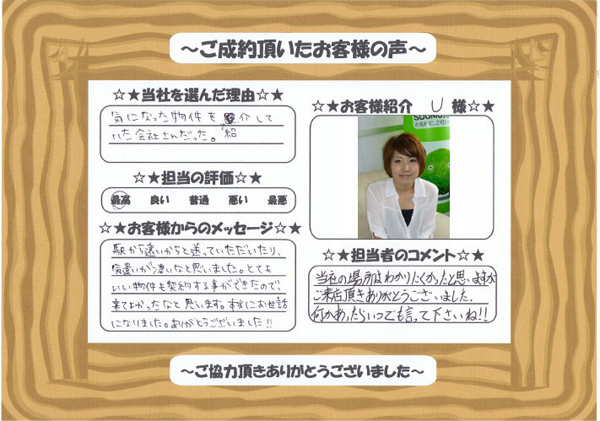 ～ご成約頂いたお客様の声～
☆★当社を選んだ理由☆★
気になった物件を紹介して
いた会社さんだった。
☆★担当の評価☆★
最高 良い 普通 悪い 最悪
☆★お客様からのメッセージ☆★
駅から遠いからと送っていただいたり、
気遣いがうまいなと思いました。とても
いい物件も契約する事ができたので、
来てよかったなと思います。本当にお世話
になりました。ありがとうございました!!
☆★お客様紹介 U 様☆★
SUUMO
☆★担当者のコメント☆★
当社の場所はわかりにくかったと思いますが
ご来店頂きありがとうございました。
何かあったらいつでも言って下さいね!!
～ご協力頂きありがとうございました～